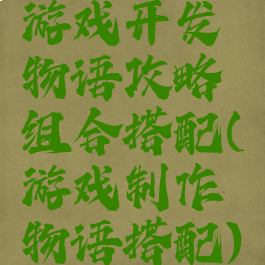 游戏开发
物语攻略
组合搭配(
游戏制作
物语搭配)